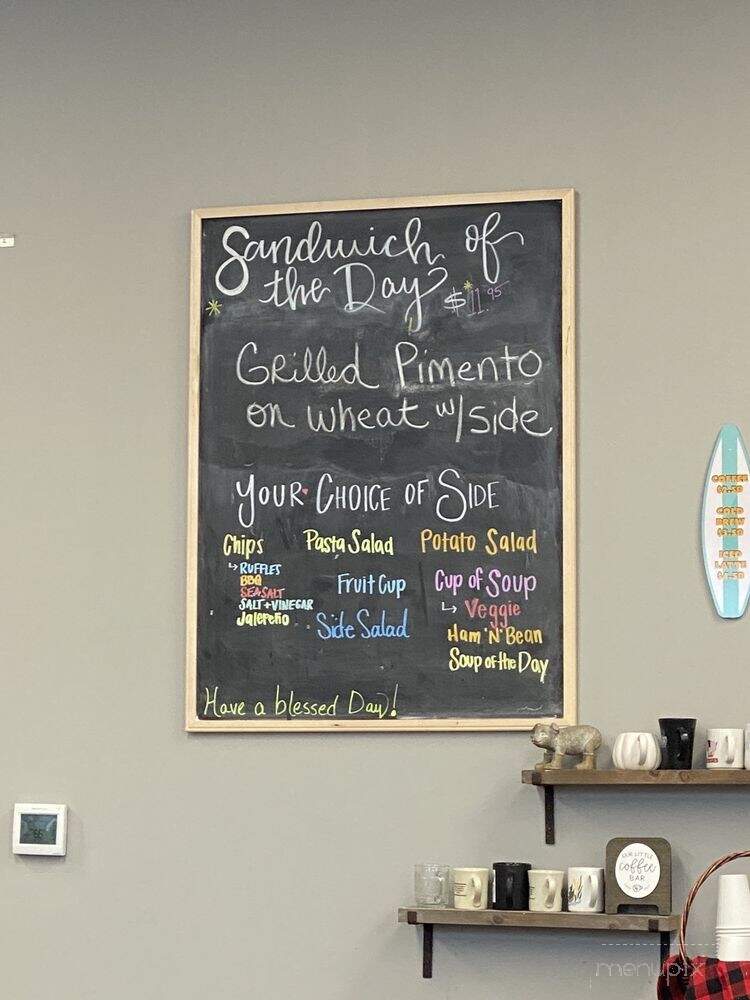 Sandwich of
the Day
$11.95
Grilled Pimento
on wheat w/side
Your Choice of Side
Chips
RUFFLES
BBQ
SEA SALT
SALT+VINEGAR
Jalepeño
Pasta Salad
Fruit Cup
Side Salad
Potato Salad
Cup of Soup
Veggie
Ham 'N' Bean
Soup of the Day
Have a blessed Day!
COFFEE
COLD
BREW
$3.50
ICED
LATTE
$4.50
OUR LITTLE
coffee
BAR
menupix